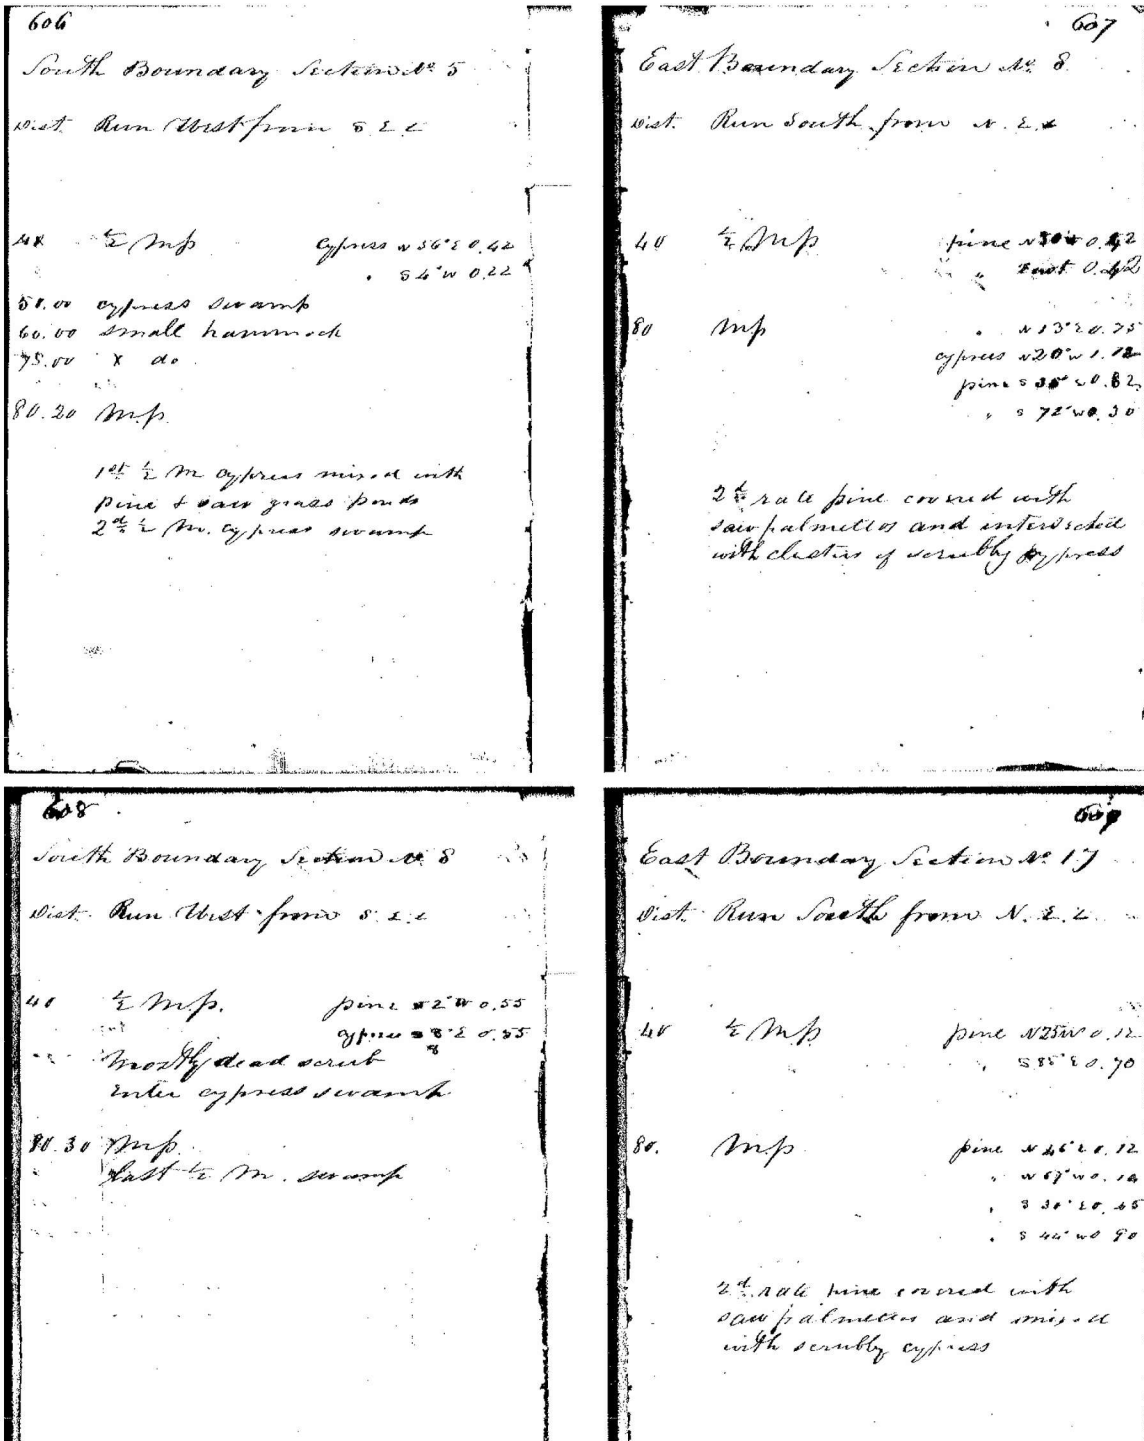 606
South Boundary Section No. 5
Dist. Run West from S E C
½ Mp Cypress N 56° E 0.42
" S 4° W 0.22
50.00 cypress swamp
60.00 small hammock
75.00 X do
80.20 Mp.
1st ½ M cypress mixed with
pine & saw grass ponds
2d ½ M. cypress swamp
607
East Boundary Section No. 8
Dist. Run South from N. E.
40 ½ Mp pine
" East
80 Mp " N 13° E 0.75
cypress N 20° W
pine S 0.82
" S 72° W 0.30
2d rate pine covered with
saw palmettos and intersected
with clusters of scrubby cypress
608
South Boundary Section No. 8
Dist. Run West from S. E. C
40 ½ Mp. pine 2° W 0.55
cypress S 8° E 0.55
8
Mostly dead scrub
Enter cypress swamp
80.30 Mp.
Last ½ M. swamp
609
East Boundary Section No. 17
Dist. Run South from N. E. C.
40 ½ Mp pine N 25 W 0.12
" S 85° E 0.70
80. Mp pine N 46° E 0.12
" N 67° W 0.14
" S 30° E 0.45
" S 44° W 0 90
2d rate pine covered with
saw palmettos and mixed
with scrubby cypress